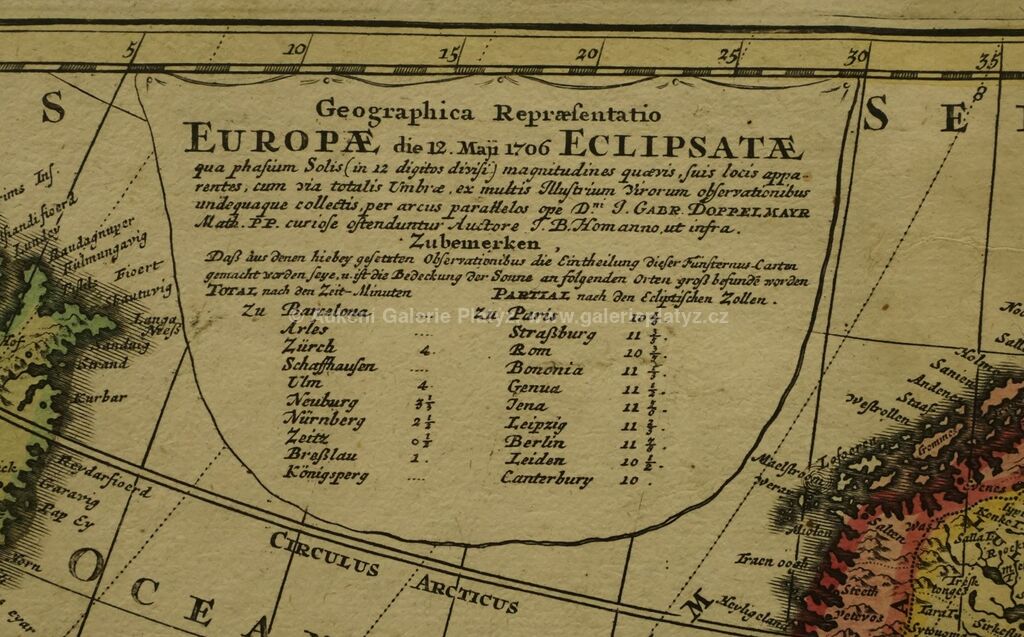 5 10 15 20 25 30 35
S
S E
8
Geographica Repræsentatio
EUROPÆ die 12. Maji 1706 ECLIPSATÆ
qua phasium Solis (in 12 digitos divisi) magnitudines quævis suis locis appa-
rentes, cum via totalis Umbræ, ex multis Illustrium Virorum observationibus
undequaque collectis, per arcus parallelos ope Dni J. GABR. DOPPELMAYR
Math. P.P. curiose ostenduntur Auctore J. B. Homanno, ut infra.
Zubemerken,
Daß aus denen hiebey gesetzten Observationibus die Eintheilung dieser Finsternus-Carten
gemacht worden seye, u. ist die Bedeckung der Sonne an folgenden Orten groß befunden worden
TOTAL nach den Zeit-Minuten PARTIAL nach den Ecliptischen Zollen.
Zu Barcelona .... Zu Paris 10
Arles .... Straßburg 11
Zürch 4. Rom 10
Schaffhausen .... Bononia 11
Ulm 4. Genua 11 ½.
Neuburg Jena 11
Nürnberg 2 ½ Leipzig 11
Zeitz 0 ½ Berlin 11
Breßlau 1. Leiden 10 ½.
Königsperg .... Canterbury 10.
© Aukční Galerie Platýz www.galerieplatyz.cz
CIRCULUS ARCTICUS
OCEA
M
Lundey
Kulmungavig
Fioert
Lautuvig
Langa
Neeß
Sandvig
Strand
Kurbar
Hof
Reydarfioerd
Hararavig
Pap Ey
Horn
Holm
Sanien
Andenes
Staaf
Westrollen
Lofoeren
Maelstroom
Weray
Trommes
Salten
Heyligeland
Steeth
Vetevos